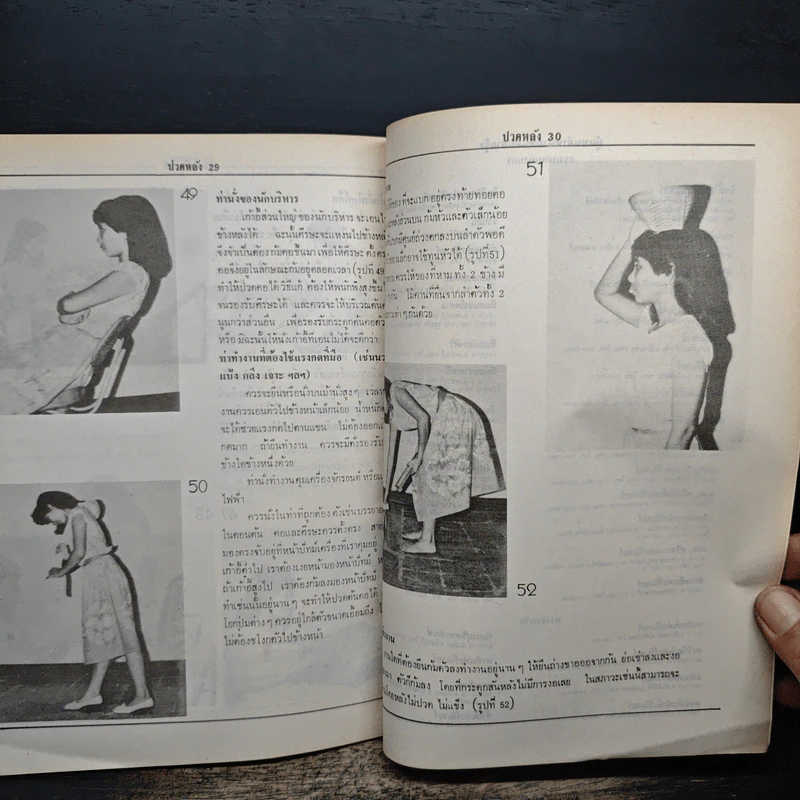 ปวดหลัง 29
49
ท่านั่งของนักบริหาร
เก้าอี้ส่วนใหญ่ของนักบริหาร จะเอนไป
ข้างหลังได้ ฉะนั้นศีรษะจะแหงนไปข้างหลัง
จึงจำเป็นต้องก้มคอขึ้นมา เพื่อให้ศีรษะ ตั้งตรง
คอจึงอยู่ในลักษณะก้มอยู่ตลอดเวลา (รูปที่ 49
ทำให้ปวดคอได้ วิธีแก้ ต้องให้พนักพิงสูงขึ้น
จนรองรับศีรษะได้ และควรจะให้บริเวณต้นคอ
นูนกว่าส่วนอื่น เพื่อรองรับกระดูกต้นคอ
หรือ มิฉะนั้นให้นั่งเก้าอี้ที่เอนไม่ได้จะดีกว่า
ท่าทำงานที่ต้องใช้แรงกดที่มือ (เช่นนวด
แป้ง กลึง เจาะ ฯลฯ)
ควรจะยืนหรือนั่งบนม้านั่งสูง ๆ เวลา
งานควรเอนตัวไปข้างหน้าเล็กน้อย น้ำหนัก
จะได้ช่วยแรงกดไปตามแขน ไม่ต้องออก
กดมาก ถ้ายืนทำงาน ควรจะมีตั่งรองรับ
ข้างใดข้างหนึ่งด้วย
50
ท่านั่งทำงานคุมเครื่องจักรยนต์ หรือ
ไฟฟ้า
ควรนั่งในท่าที่ถูกต้อง ดังเช่นบรรยาย
ในตอนต้น คอและศีรษะควรตั้งตรง สาย
มองตรงจับอยู่ที่หน้าปัทม์เครื่องที่เราคุมอยู่
เก้าอี้ต่ำไป เราต้องเงยหน้ามองหน้าปัทม์
ถ้าเก้าอี้สูงไป เราต้องก้มลงมองหน้าปัทม์
ทำเช่นนั้นอยู่นาน ๆ จะทำให้ปวดต้นคอได้
โยกปุ่มต่าง ๆ ควรอยู่ใกล้ตัวขนาดเอื้อมถึง
ไม่ต้องชะโงกตัวไปข้างหน้า
ปวดหลัง 30
51
ของ ที่จะแบก อยู่ตรงท้ายทอยต่อ
หลังส่วนบน ก้มหัวและตัวเล็กน้อย
ศูนย์ถ่วงตกลงบนลำตัวพอดี
อาจใช้ทูนหัวได้ (รูปที่ 51)
ควรให้ของที่หามทั้ง 2 ข้าง มี
ไม้คานที่ยื่นจากลำตัวทั้ง 2
เท่า ๆ กันด้วย
52
งานใดที่ต้องยืนก้มตัวลงทำงานอยู่นาน ๆ ให้ยืนถ่างขาออกจากกัน ย่อเข่าลงและงอ
ตัวก็ก้มลง โดยที่กระดูกสันหลังไม่มีการงอเลย ในสภาวะเช่นนี้สามารถจะ
โดยหลังไม่ปวด ไม่แข็ง (รูปที่ 52)